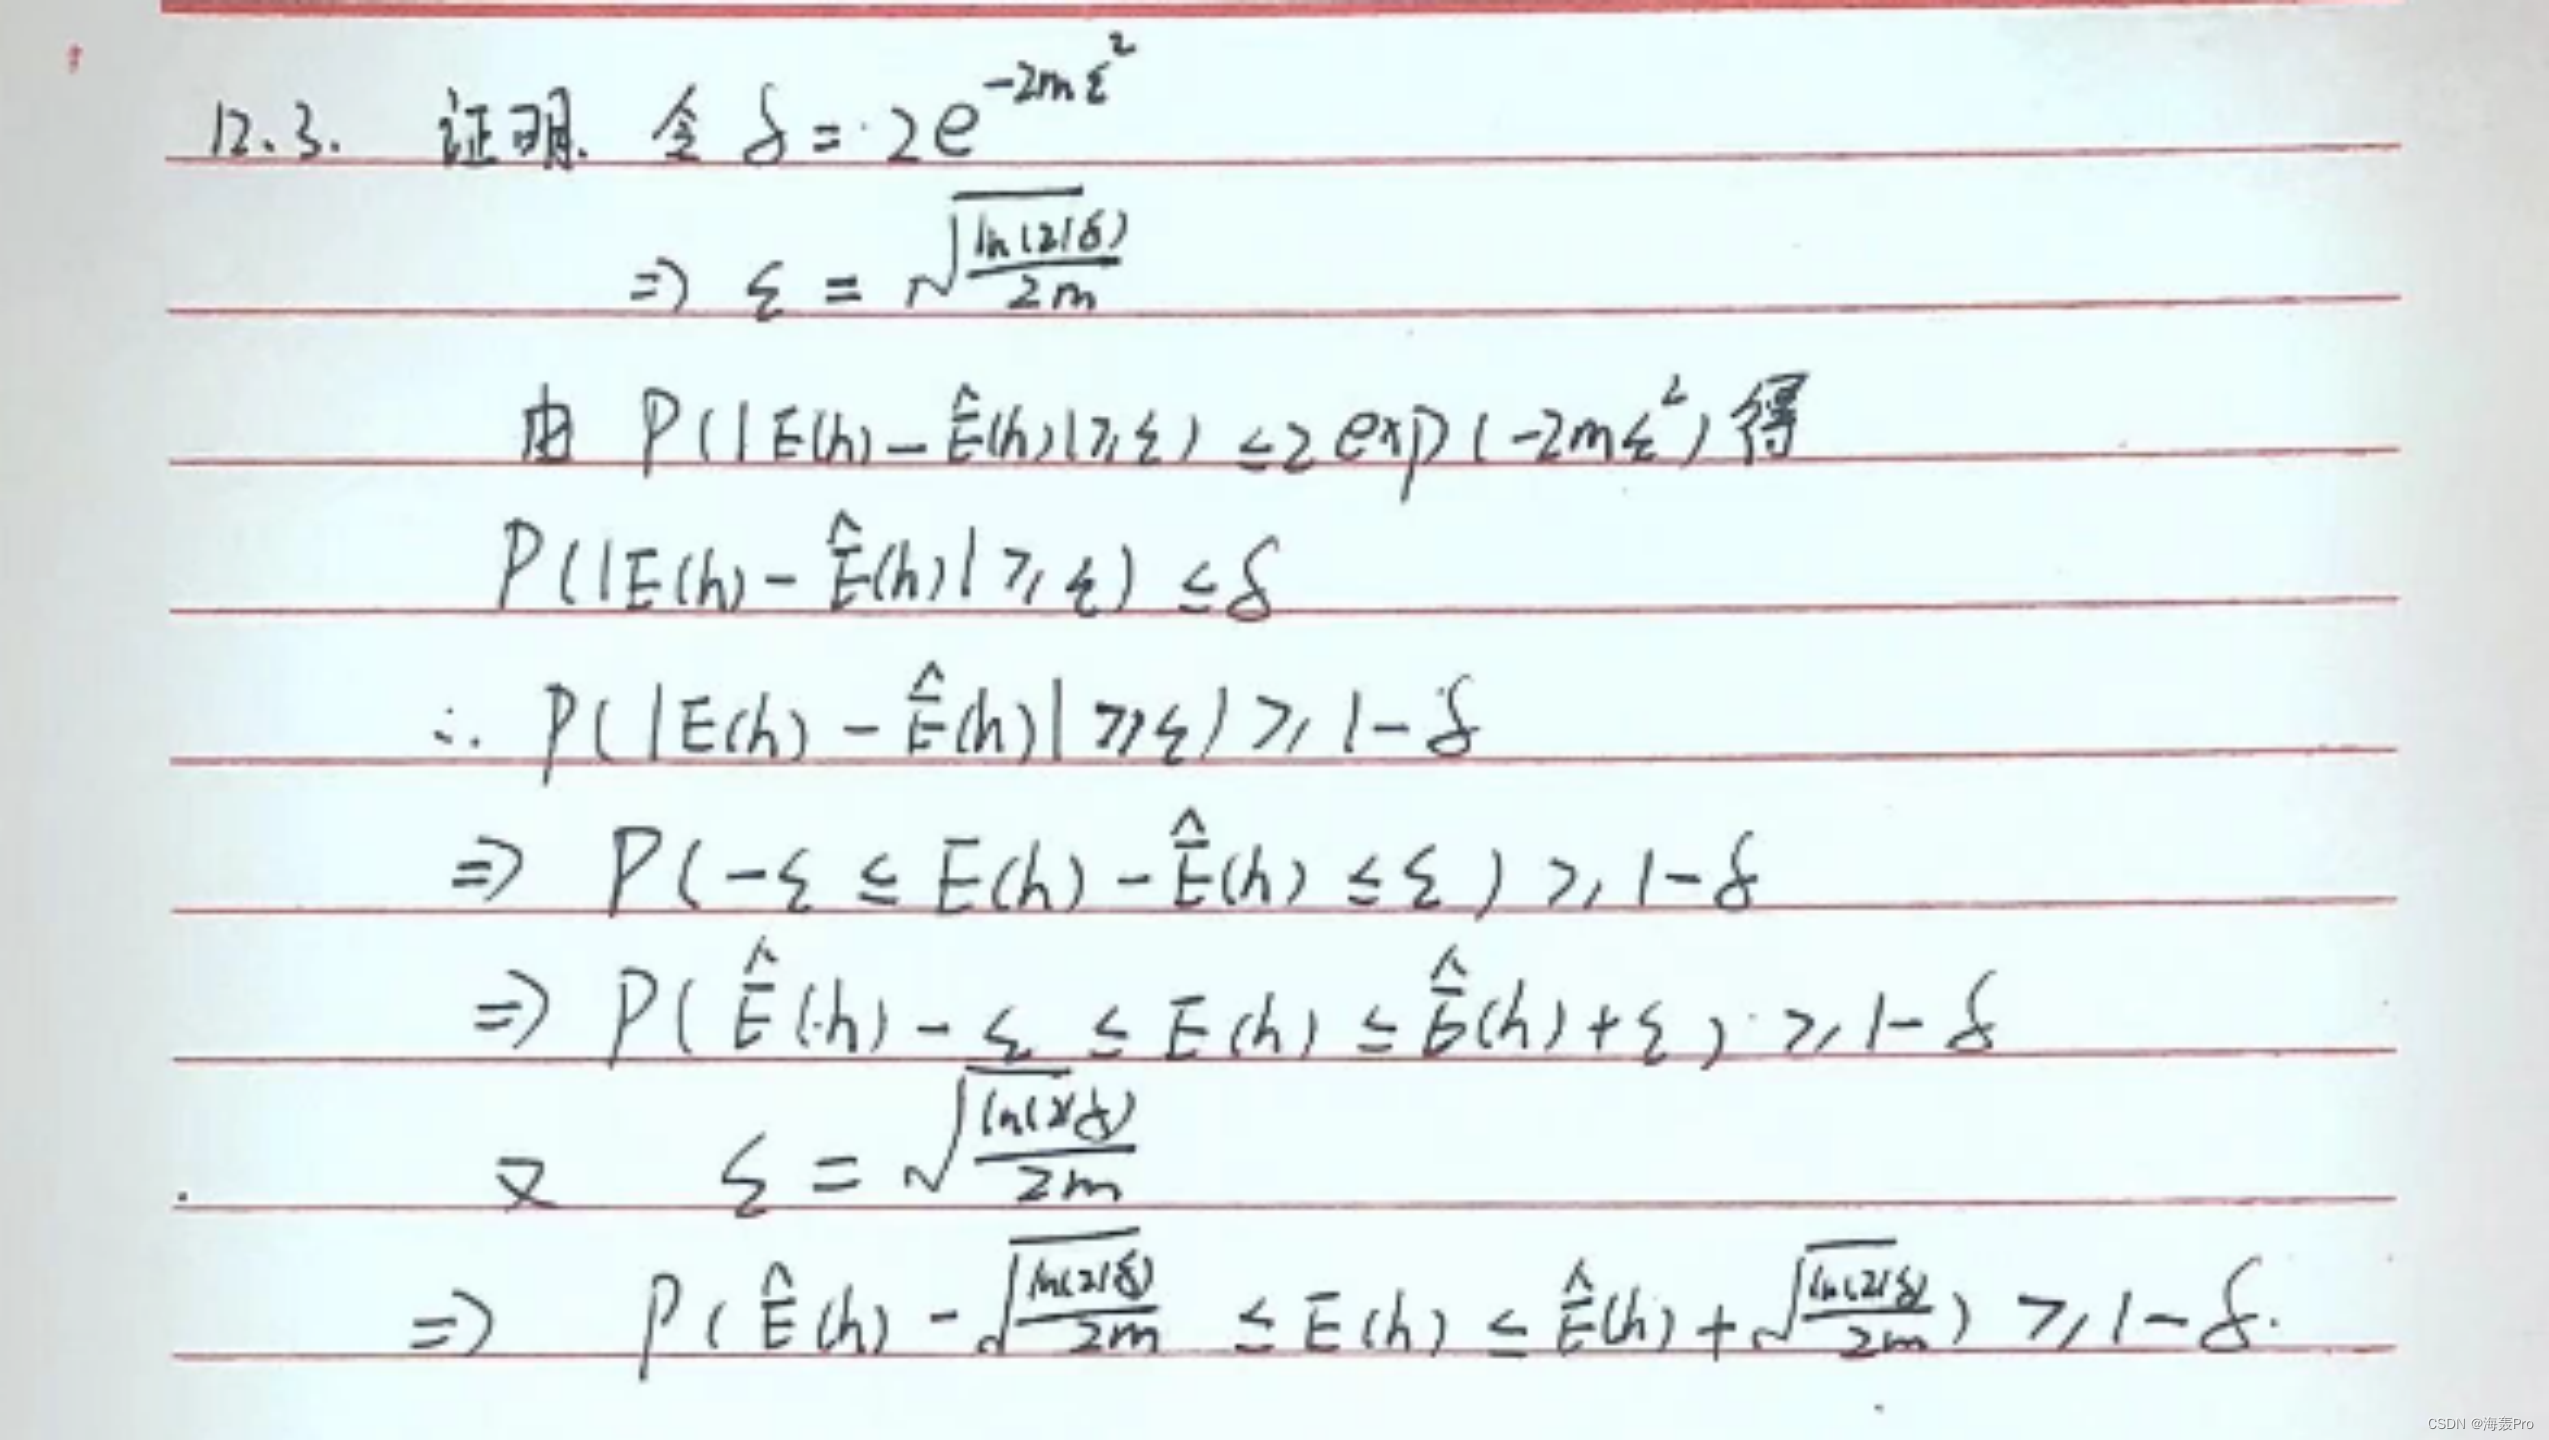 12.3. 证明. 令 δ = 2e^{-2mε²}
⇒ ε = √(ln(2/δ)/2m)
由 P(|E(h) - Ê(h)| ≥ ε) ≤ 2exp(-2mε²) 得
P(|E(h) - Ê(h)| ≥ ε) ≤ δ
∴ P(|E(h) - Ê(h)| ≥ ε) ≥ 1-δ
⇒ P(-ε ≤ E(h) - Ê(h) ≤ ε) ≥ 1-δ
⇒ P(Ê(h) - ε ≤ E(h) ≤ Ê(h) + ε) ≥ 1-δ
又 ε = √(ln(2/δ)/2m)
⇒ P(Ê(h) - √(ln(2/δ)/2m) ≤ E(h) ≤ Ê(h) + √(ln(2/δ)/2m)) ≥ 1-δ.
CSDN @海轰Pro